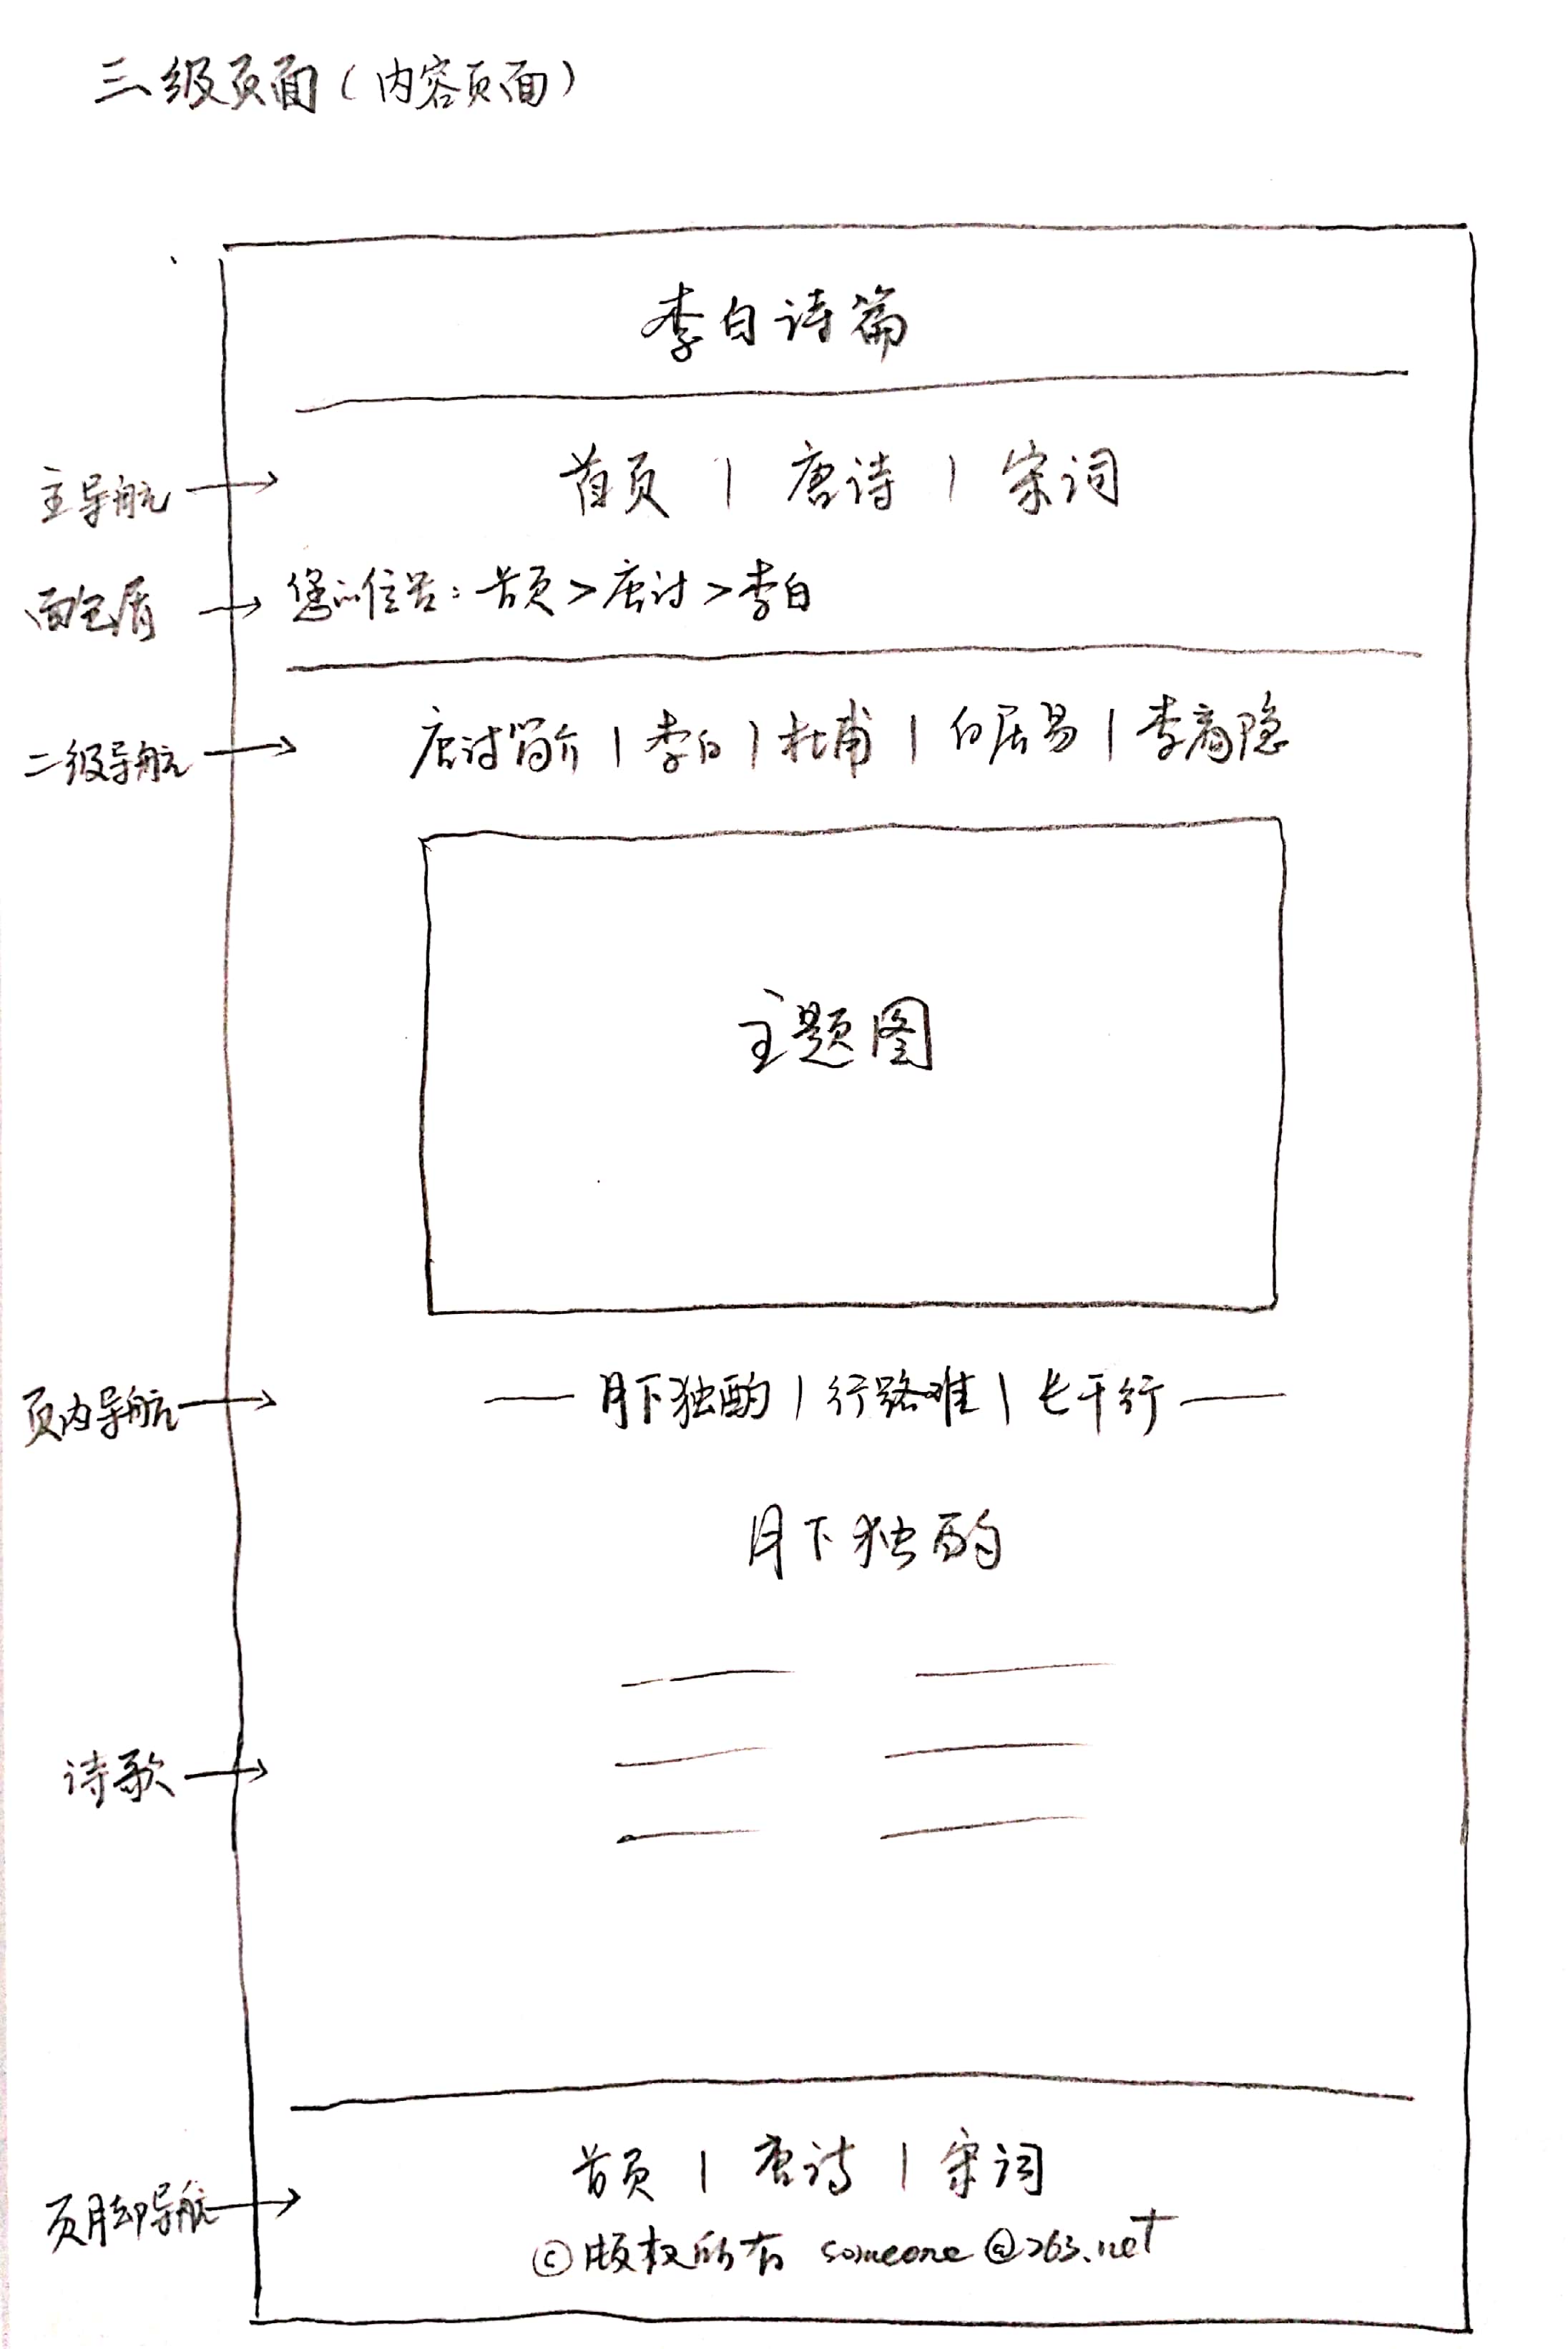 三级页面(内容页面)
李白诗篇
主导航
首页 | 唐诗 | 宋词
面包屑
您的位置:首页>唐诗>李白
二级导航
唐诗简介 | 李白 | 杜甫 | 白居易 | 李商隐
主题图
页内导航
月下独酌 | 行路难 | 长干行
月下独酌
诗歌
页脚导航
首页 | 唐诗 | 宋词
©版权所有 someone@263.net